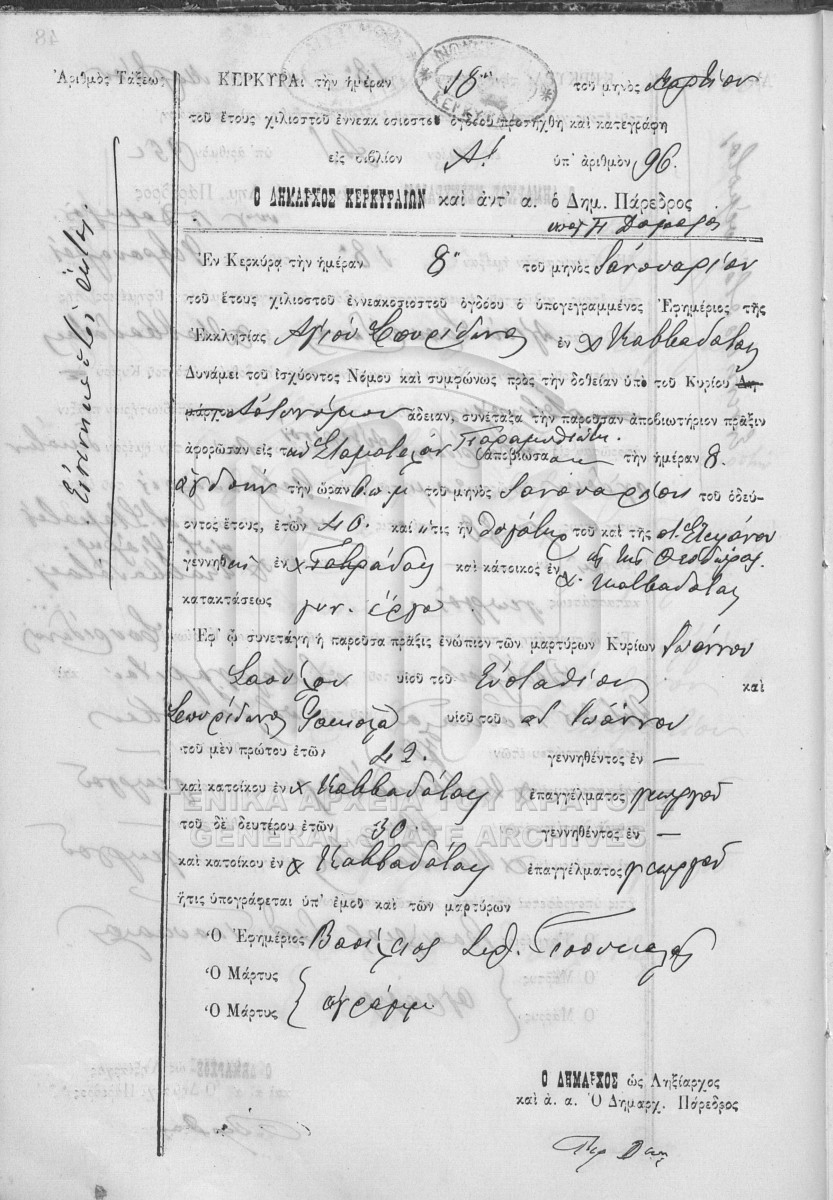 48
Ἀριθμὸς Τάξεως
Ἐνενηκοστὸς ἕκτος
ΚΕΡΚΥΡΑι τὴν ἡμέραν 18ην τοῦ μηνὸς Μαρτίου
τοῦ ἔτους χιλιοστοῦ ἐννεακοσιοστοῦ ὀγδόου προσήχθη καὶ κατεγράφη
εἰς βιβλίον Α! ὑπ' ἀριθμὸν 96.
Ο ΔΗΜΑΡΧΟΣ ΚΕΡΚΥΡΑΙΩΝ καὶ ἀντ' α. ὁ Δημ. Πάρεδρος
Ἐν Κερκύρᾳ τὴν ἡμέραν 8ην τοῦ μηνὸς Ἰανουαρίου
τοῦ ἔτους χιλιοστοῦ ἐννεακοσιοστοῦ ὀγδόου ὁ ὑπογεγραμμένος Ἐφημέριος τῆς
Ἐκκλησίας Ἁγίου Σπυρίδωνος ἐν χ Καββαδάταις
Δυνάμει τοῦ ἰσχύοντος Νόμου καὶ συμφώνως πρὸς τὴν δοθεῖσαν ὑπὸ τοῦ Κυρίου Δη-
μάρχου Ἀστυνόμου ἄδειαν, συνέταξα τὴν παροῦσαν ἀποβιωτήριον πρᾶξιν
ἀφορῶσαν εἰς τὴν Σταματέλαν Παραμυθιώτη ἀποβιώσασαν τὴν ἡμέραν 8.
ὀγδόην τὴν ὥραν 6 π.μ τοῦ μηνὸς Ἰανουαρίου τοῦ ὁδεύ-
οντος ἔτους, ἐτῶν 40. καὶ ἥτις ἦν θυγάτηρ τοῦ καὶ τῆς π. Στεφάνου
καὶ τῆς Θεοδώρας
γεννηθεῖσα ἐν χ κατοίκος ἐν χ. Καββαδάταις
κατακτάσεως γυν. ἔργα.
Ἐφ' ᾧ συνετάγη ἡ παροῦσα πρᾶξις ἐνώπιον τῶν μαρτύρων Κυρίων Ἰωάννου
υἱοῦ τοῦ Εὐσταθίου καὶ
Σπυρίδωνος υἱοῦ τοῦ π. Ἰωάννου
τοῦ μὲν πρώτου ἐτῶν 42. γεννηθέντος ἐν —
καὶ κατοίκου ἐν χ Καββαδάταις ἐπαγγέλματος γεωργοῦ
ΓΕΝΙΚΑ ΑΡΧΕΙΑ ΤΟΥ ΚΡΑΤΟΥΣ
τοῦ δὲ δευτέρου ἐτῶν 30 γεννηθέντος ἐν —
GENERAL STATE ARCHIVES
καὶ κατοίκου ἐν χ Καββαδάταις ἐπαγγέλματος γεωργοῦ
ἥτις ὑπογράφεται ὑπ' ἐμοῦ καὶ τῶν μαρτύρων
Ὁ Ἐφημέριος Βασίλειος
Ὁ Μάρτυς
Ὁ Μάρτυς ἀγράμμ
Ο ΔΗΜΑΡΧΟΣ ὡς Ληξίαρχος
καὶ ἀ. α. Ὁ Δημαρχ. Πάρεδρος